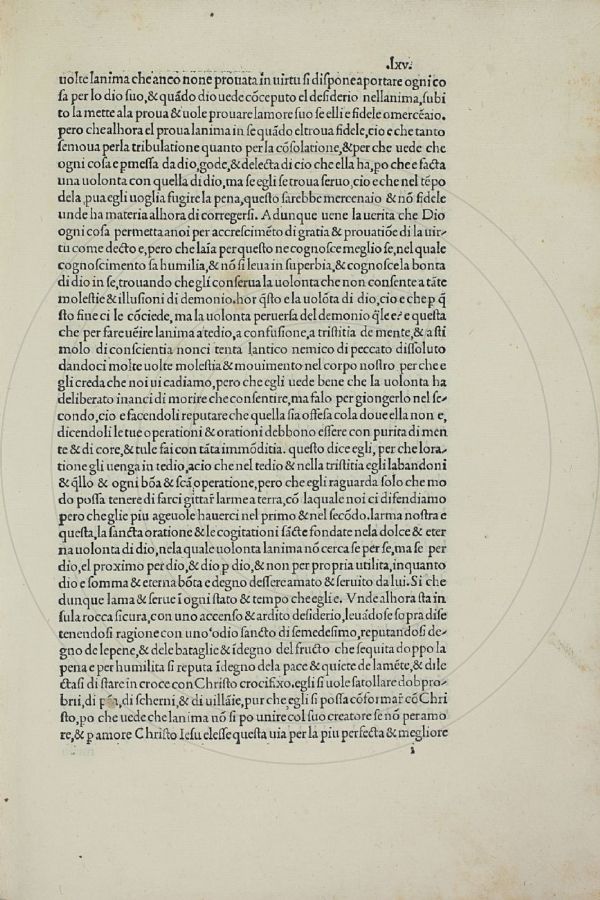 .lxv.
uolte lanima che anco none prouata in uirtu si dispone aportare ogni co
sa per lo dio suo, & quãdo dio uede cõceputo el desiderio nellanima, subi
to la mette ala proua & uole prouare lamore suo se elli e fidele o mercẽaio.
pero che alhora el proua lanima in se quãdo el troua fidele, cio e che tanto
se moua per la tribulatione quanto per la cõsolatione, & per che uede che
ogni cosa e pmessa da dio, gode, & delecta di cio che ella ha, po che e facta
una uolonta con quella di dio, ma se egli se troua seruo, cio e che nel tẽpo
dela pua egli uoglia fugire la pena, questo sarebbe mercenaio & nõ fidele
unde ha materia alhora di corregersi. Adunque uene la uerita che Dio
ogni cosa permetta a noi per accrescimẽto di gratia & prouatiõe di la uir-
tu come decto e, pero che laĩa per questo ne cognosce meglio se, nel quale
cognoscimento sa humilia, & nõ si leua in superbia, & cognosce la bonta
di dio in se, trouando che gli conserua la uolonta che non consente a tãte
molestie & illusioni di demonio. hor q̃sto e la uolõta di dio, cio e che p q̃
sto fine ci le cõciede, ma la uolonta peruersa del demonio q̃le e? e questa
che per fare uẽire lanima a tedio, a confusione, a tristitia de mente, & a sti
molo di conscientia non ci tenta lantico nemico di peccato dissoluto
dandoci molte uolte molestia & mouimento nel corpo nostro per che e
gli creda che noi ui cadiamo, pero che egli uede bene che la uolonta ha
deliberato inanci di morire che consentire, ma falo per giongerlo nel se-
condo, cio e facendoli reputare che quella sia offesa cola doue ella non e,
dicendoli le tue operationi & orationi debbono essere con purita di men
te & di core, & tu le fai con tãta immõditia. questo dice egli, per che lora-
tione gli uenga in tedio, acio che nel tedio & nella tristitia egli labandoni
& q̃llo & ogni bõa & scã operatione, pero che egli raguarda solo che mo
do possa tenere di farci gittar̃ larme a terra, cõ la quale noi ci difendiamo
pero che gli e piu ageuole hauerci nel primo & nel secõdo. larma nostra e
questa, la sancta oratione & le cogitationi sãcte fondate nela dolce & eter
na uolonta di dio, nela quale uolonta lanima nõ cerca se per se, ma se per
dio, el proximo per dio, & dio p dio, & non per propria utilita, inquanto
dio e somma & eterna bõta e degno dessere amato & seruito da lui. Si che
dunque lama & serue ĩ ogni stato & tempo che egli e. Vnde alhora sta in
su la rocca sicura, con uno accenso & ardito desiderio, leuãdo se sopra di se
tenendosi ragione con uno odio sancto di se medesimo, reputandosi de-
gno de le pene, & dele bataglie & ĩdegno del fructo che sequita doppo la
pena e per humilita si reputa ĩdegno dela pace & quiete de la mẽte, & dile
ctasi di stare in croce con Christo crocifixo. egli si uole satollare dobpro-
brii, di di scherni, & di uillãie, pur che egli si possa cõformar̃ cõ Chri
sto, po che uede che lanima nõ si po unire col suo creatore se nõ per amo
re, & p amore Christo Iesu elesse questa uia per la piu perfecta & megliore
i